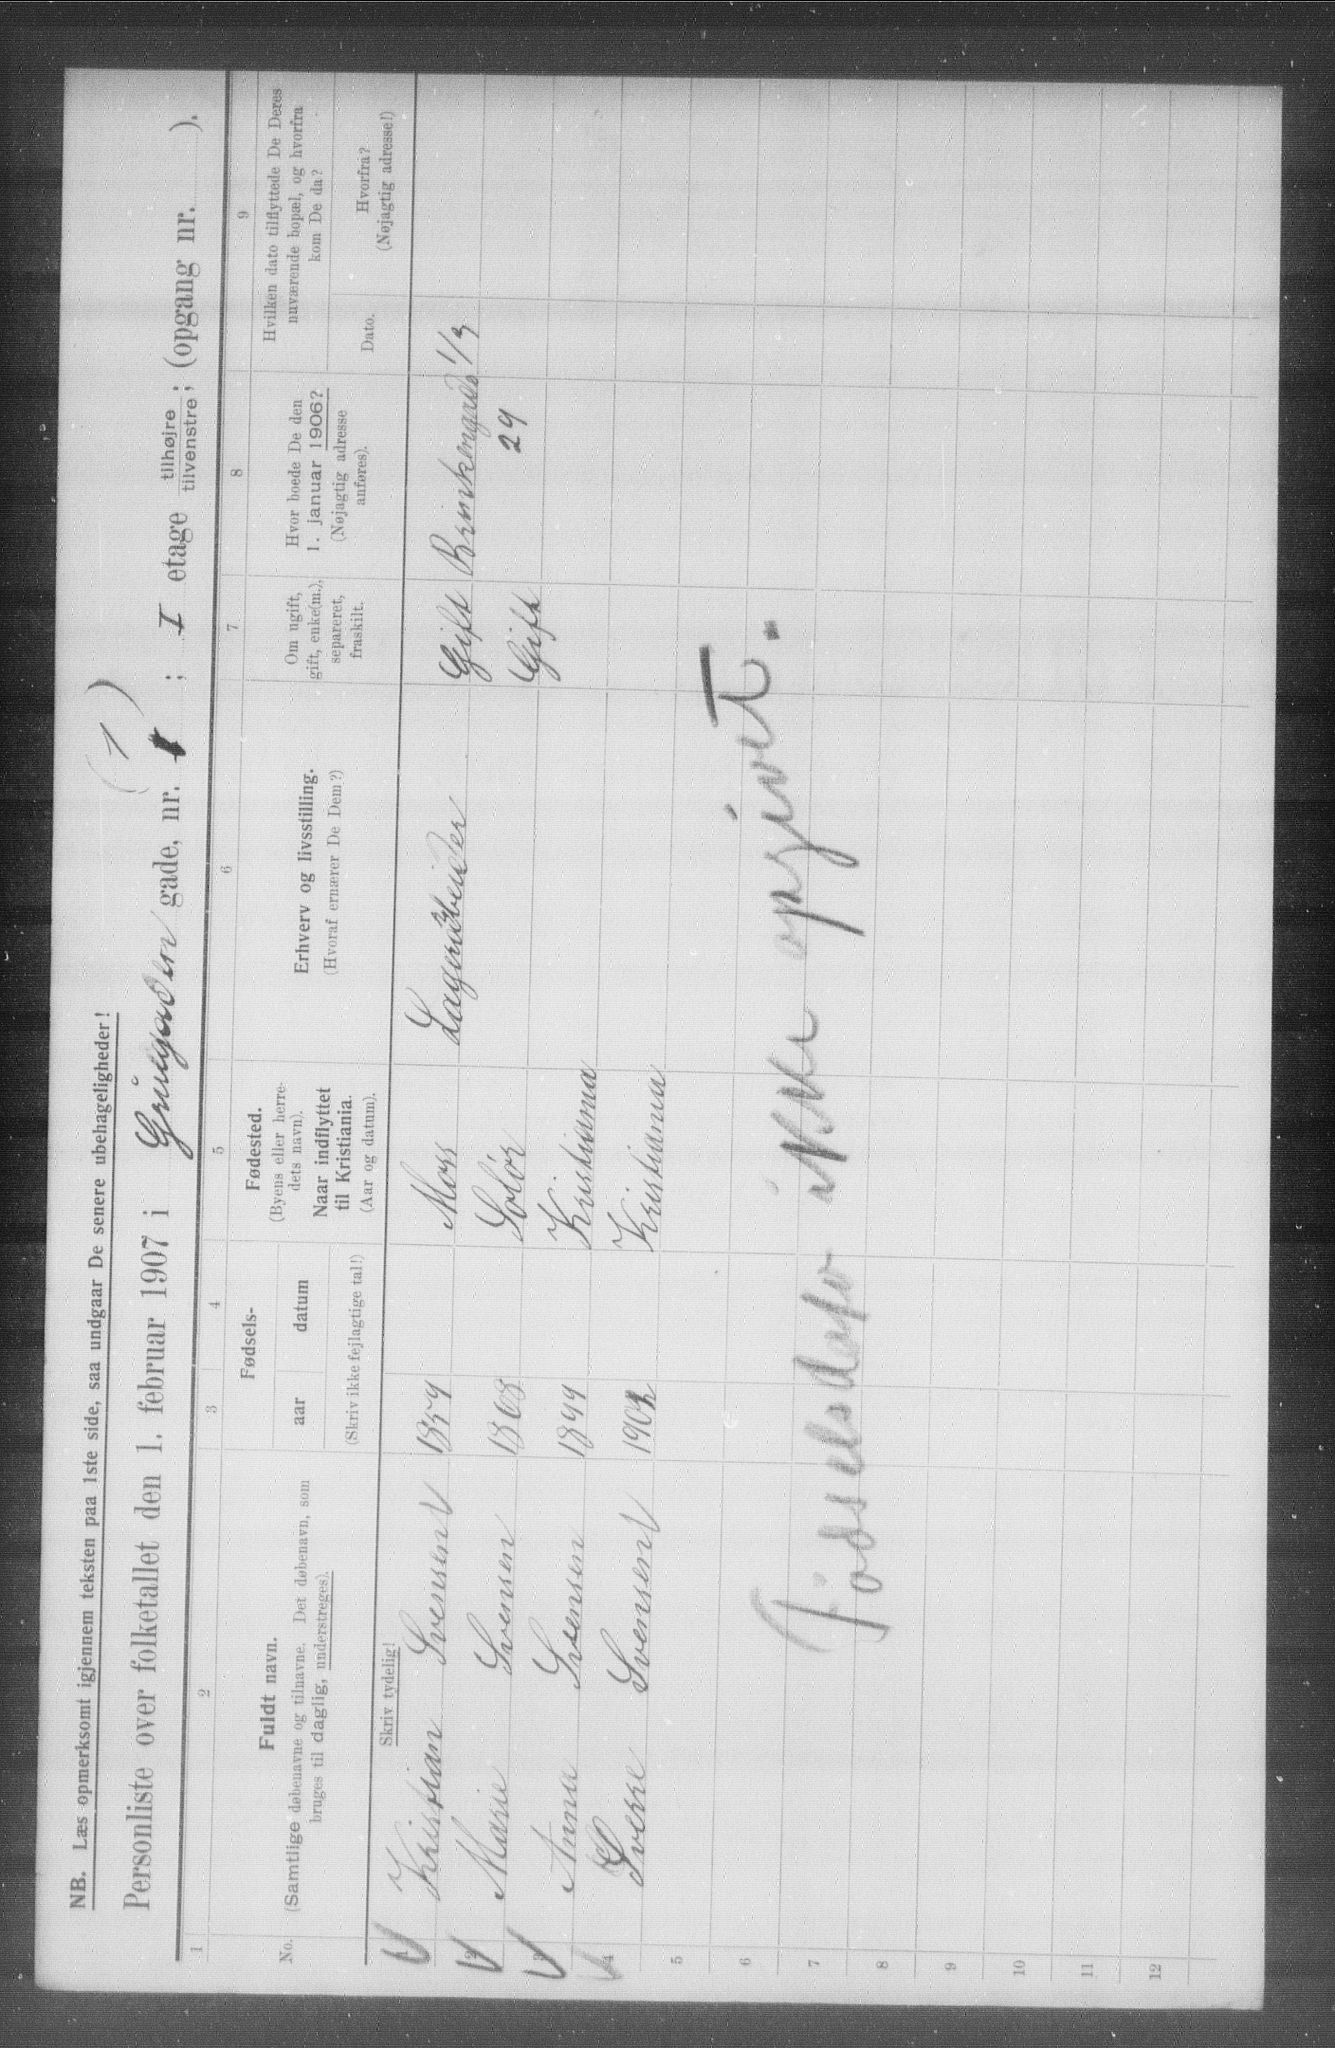 NB. Læs opmerksomt igjennem teksten paa 1ste side, saa undgaar De senere ubehageligheder!
(1)
Personliste over folketallet den 1. februar 1907 i gade, nr. ; I etage tilhøjre / tilvenstre ; (opgang nr. ).
1 2 3 4 5 6 7 8 9
No.
Fuldt navn.
(Samtlige døbenavne og tilnavne. Det døbenavn, som
bruges til daglig, understreges).
Fødsels-
aar datum
(Skriv ikke fejlagtige tal!)
Fødested.
(Byens eller herre-
dets navn).
Naar indflyttet
til Kristiania.
(Aar og datum).
Erhverv og livsstilling.
(Hvoraf ernærer De Dem?)
Om ugift,
gift, enke(m.),
separeret,
fraskilt.
Hvor boede De den
1. januar 1906?
(Nøjagtig adresse
anføres).
Hvilken dato tilflyttede De Deres
nuværende bopæl, og hvorfra
kom De da?
Dato.
Hvorfra?
(Nøjagtig adresse!)
Skriv tydelig!
1 Kristian Svensen Moss Gift 1/3
2 Marie Svensen 1868 Solør Gift 29
3 Anna Svensen 1899 Kristiania
4 Sverre Svensen Kristiania
5
6
7
8
9
10
11
12
Fødselsdato ikke opgivet.